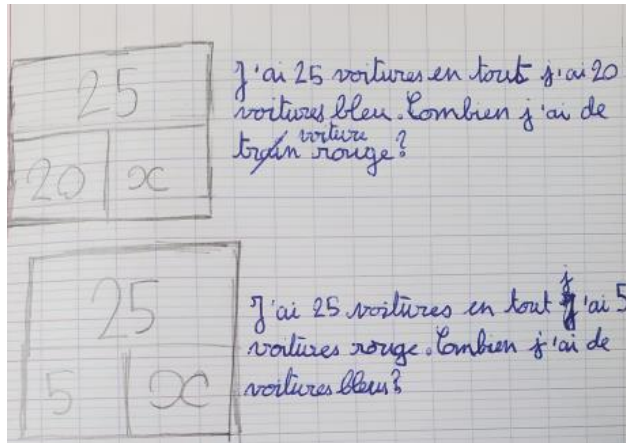 25
20 x
J'ai 25 voitures en tout j'ai 20
voitures bleu. Combien j'ai de
voiture
train rouge?
25
5 x
J'ai 25 voitures en tout j'ai 5
voitures rouge. Combien j'ai de
voitures bleus?